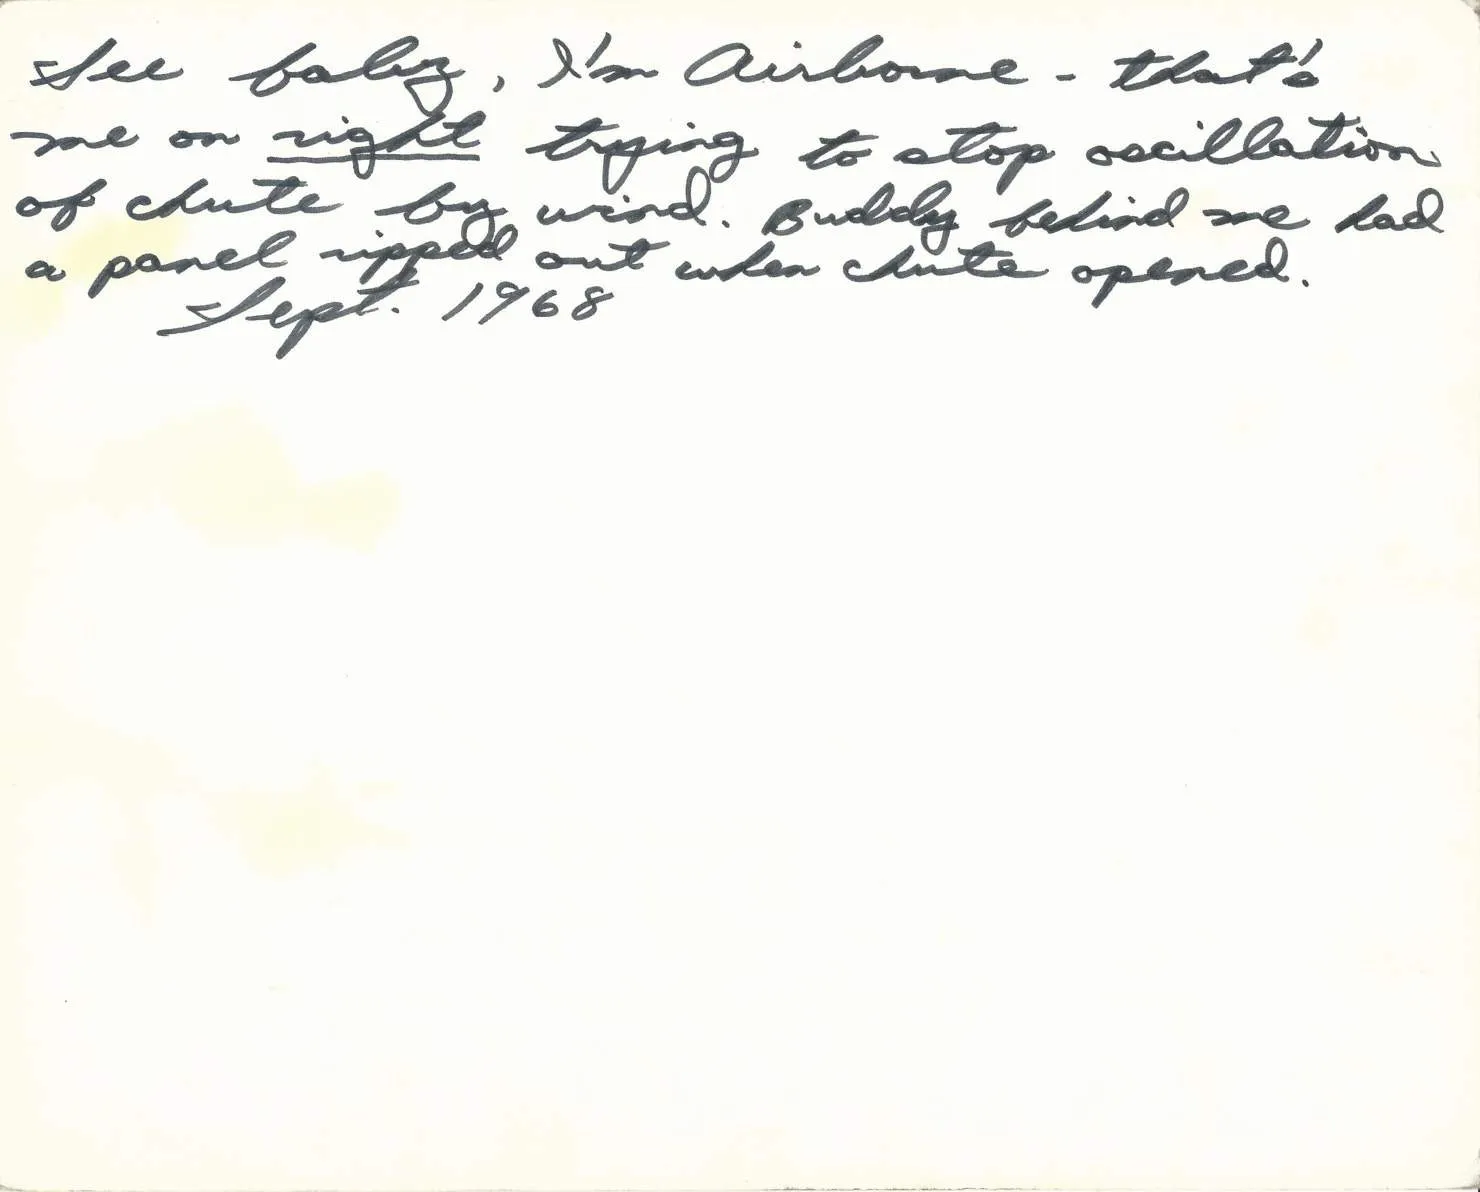 See baby, I'm Airborne - that's
me on right trying to stop oscillation
of chute by wind. Buddy behind me had
a panel ripped out when chute opened.
Sept. 1968